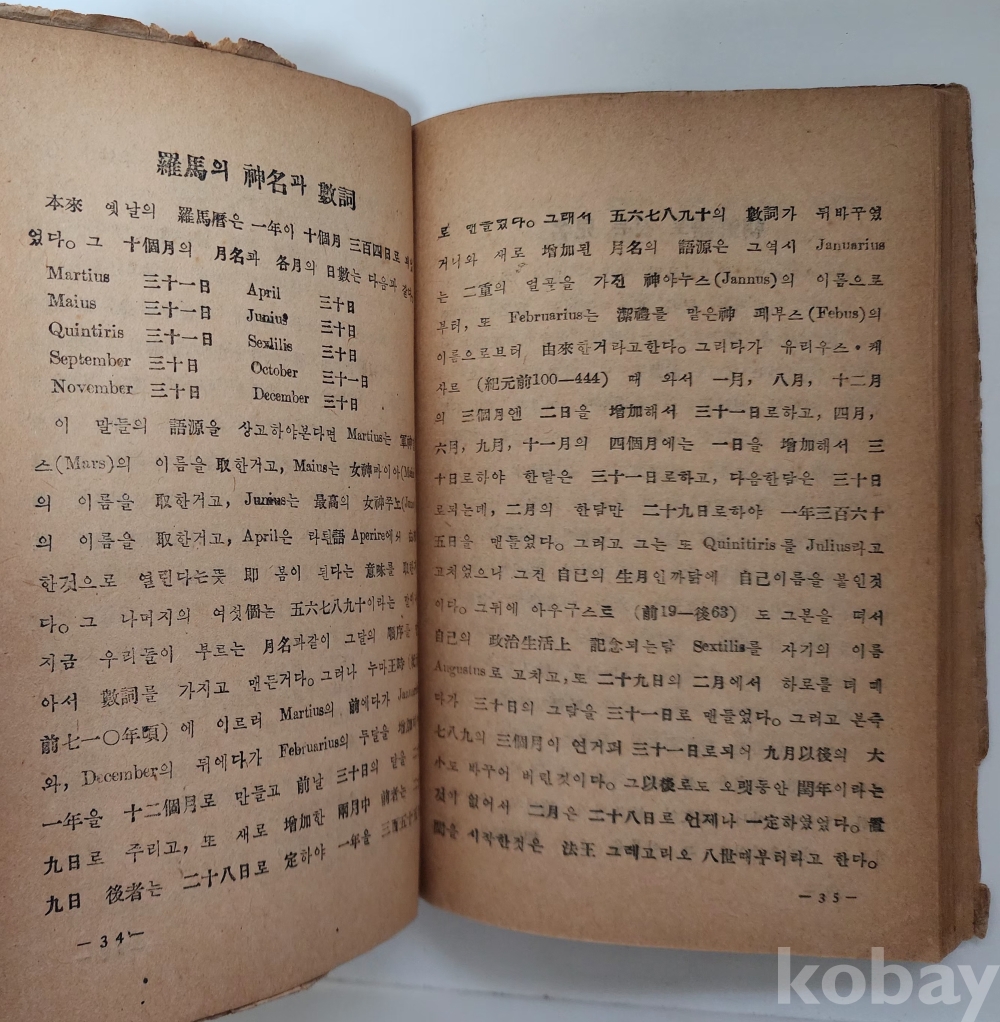 羅馬의 神名과 數詞
本來 옛날의 羅馬曆은 一年이 十個月 三百四日로
었다。그 十個月의 月名과 各月의 日數는 다음과
Martius 三十一日 April 三十日
Maius 三十一日 Junius 三十日
Quintiris 三十一日 Sextilis 三十日
September 三十日 October 三十一日
November 三十日 December 三十日
이 말들의 語源을 상고하야본다면 Martius는
스(Mars)의 이름을 取한거고, Maius는 女神마이아
의 이름을 取한거고, Junius는 最高의 女神주노
의 이름을 取한거고, April은 라틴語 Aperire에서
한것으로 열린다는뜻 即 봄이 된다는 意味를
다。그 나머지의 여섯個는 五六七八九十이라는
지금 우리들이 부르는 月名과같이 그달의 順序를
아서 數詞를 가지고 맨든거다。그러나 누마王時
前七一〇年頃) 에 이르러 Martius의 前에다가
와, December의 뒤에다가 Februarius의 두달을
一年을 十二個月로 만들고 前날 三十日의 달을
九日로 주리고, 또 새로 增加한 兩月中 前者는
九日 後者는 二十八日로 定하야 一年을
—34—
로 맨들었다。그래서 五六七八九十의 數詞가 뒤바꾸였
거니와 새로 增加된 月名의 語源은 그역시 Januarius
는 二重의 얼골을 가진 神야누스(Jannus)의 이름으로
부터, 또 Februarius는 潔禮를 맡은神 페부스(Febus)의
이름으로부터 由來한거라고한다。그리다가 유리우스·케
사르 (紀元前100—444) 때 와서 一月, 八月, 十二月
의 三個月엔 二日을 增加해서 三十一日로하고, 四月,
六月, 九月, 十一月의 四個月에는 一日을 增加해서 三
十日로하야 한달은 三十一日로하고, 다음한달은 三十日
로되는데, 二月의 한달만 二十九日로하야 一年三百六十
五日을 맨들었다。그러고 그는 또 Quinitiris를 Julius라고
고치었으니 그건 自己의 生月인까닭에 自己이름을 붙인것
이다。그뒤에 아우구스트 (前19—後63) 도 그본을 떠서
自己의 政治生活上 記念되는달 Sextilis를 자기의 이름
Augustus로 고치고, 또 二十九日의 二月에서 하로를 더 떼
다가 三十日의 그달을 三十一日로 맨들었다。그러고 본즉
七八九의 三個月이 연거퍼 三十一日로되어 九月以後의 大
小도 바꾸어 버린것이다。그以後로도 오랫동안 閏年이라는
것가 없어서 二月은 二十八日로 언제나 一定하였었다。置
閏을 시작한것은 法王 그레고리오 八世때부터라고 한다。
—35—
kobay